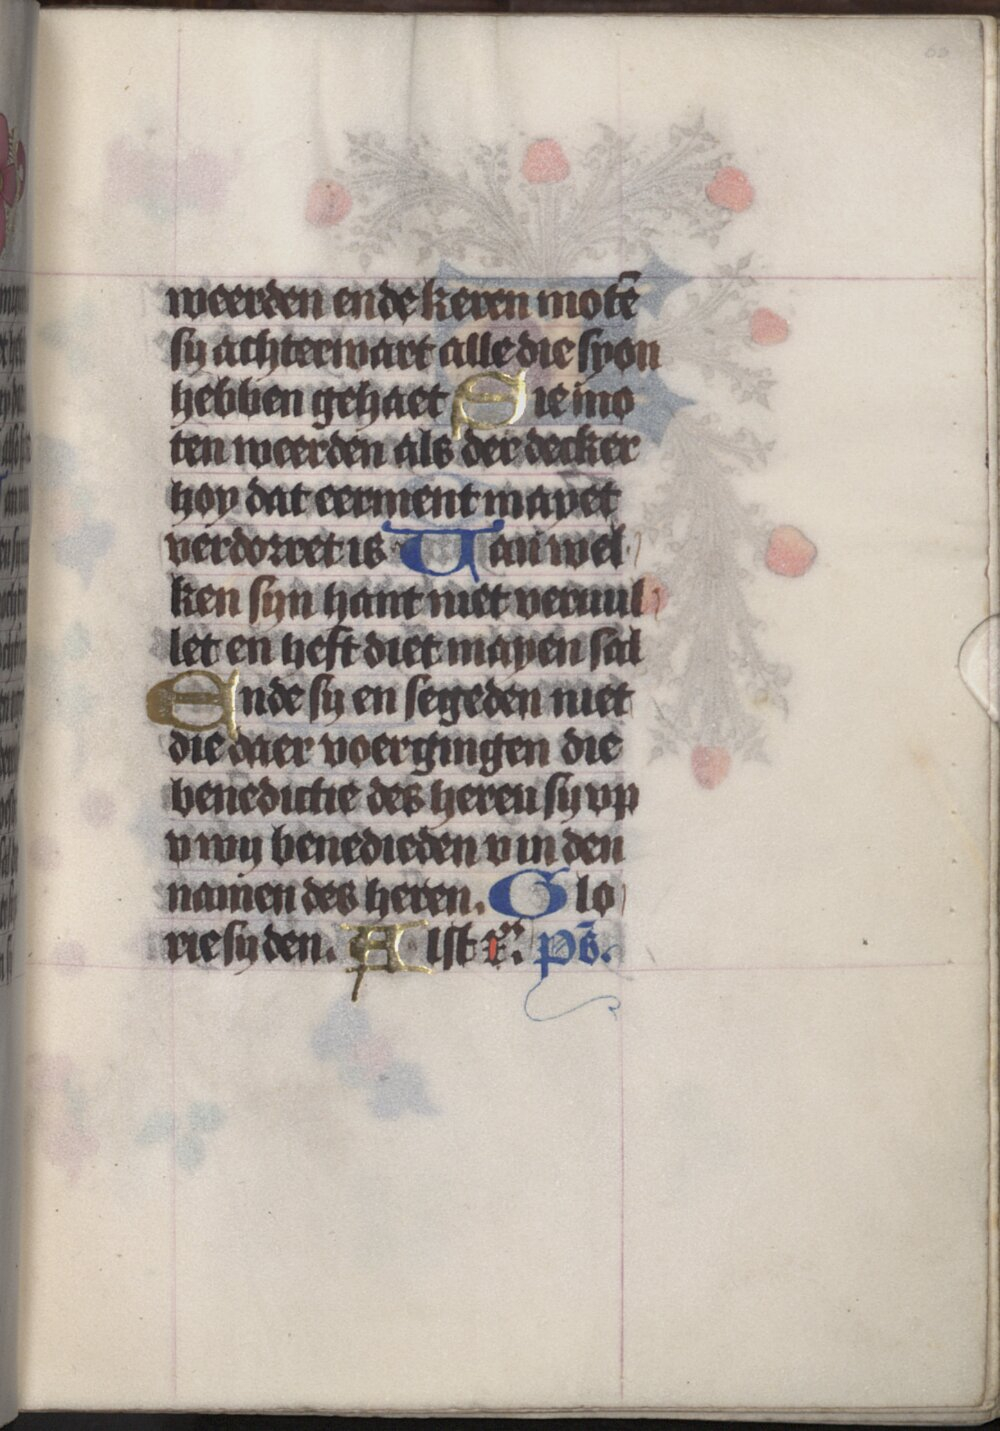 weerden ende keren motē
sy achterwart alle die syon
hebben gehaet Sie mo
ten weerden als der decker
hoy dat eerment mayet
verdorret is Uan wel
ken syn hant niet veruul
let en heft diet mayen sal
Ende sy en segeden niet
die daer voergingen die
benedictie des heren sy vp
v wy benedieden v in den
namen des heren. Glo
rie sy den. Alst